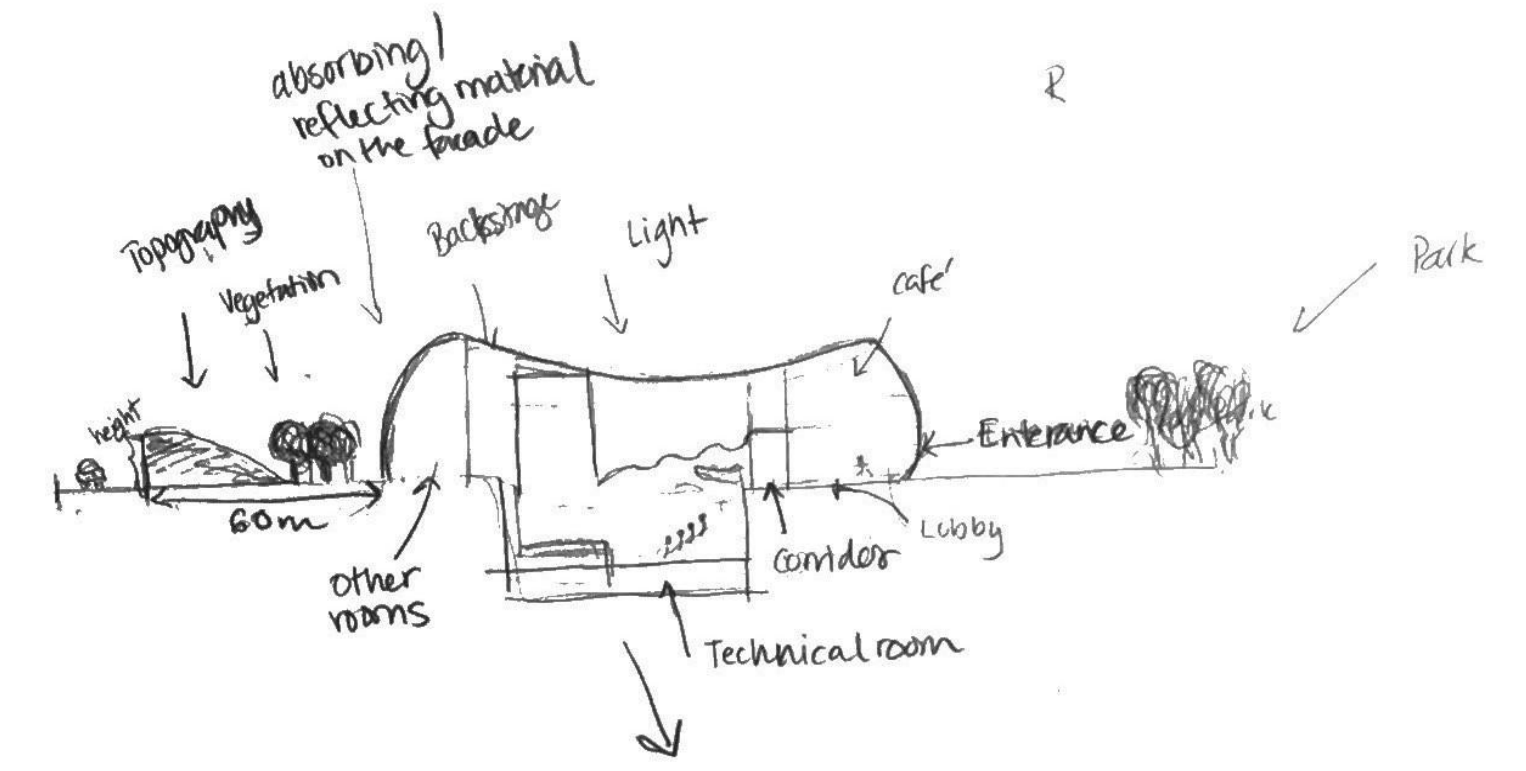 absorbing/
reflecting material
on the facade
R
Topography
Vegetation
Backstage
Light
café
Park
height
Enterance
60m
Lobby
corridor
other
rooms
Technical room